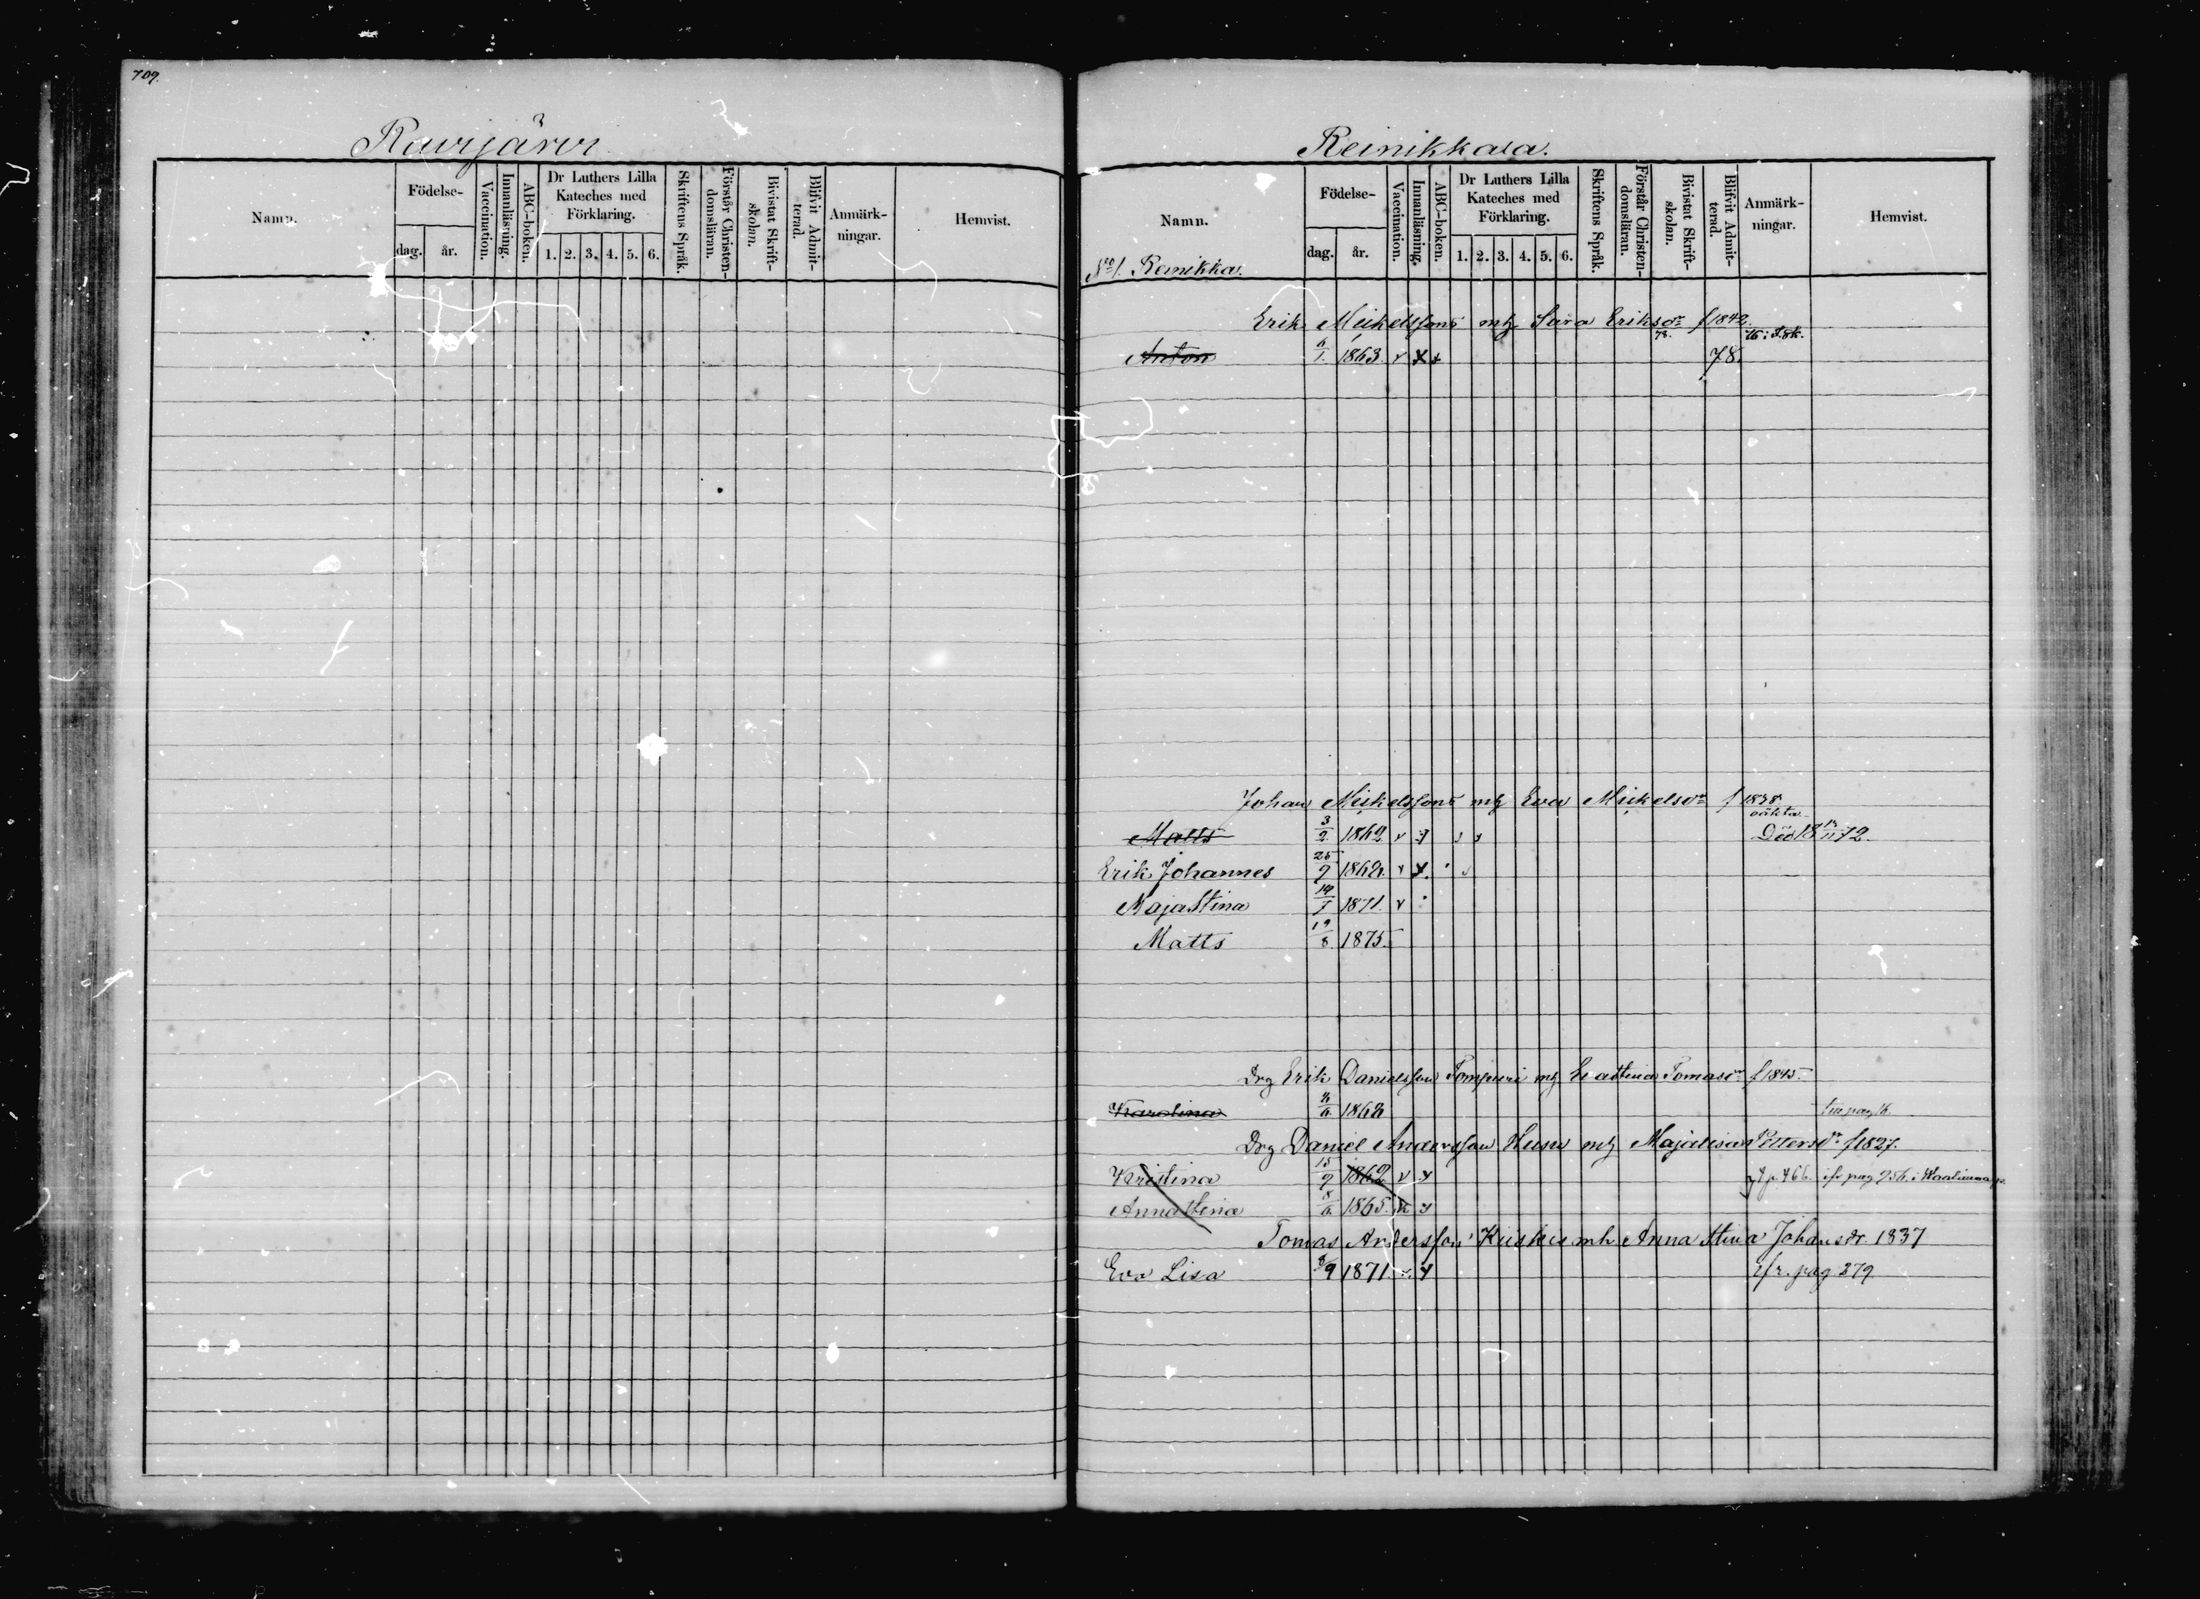 709.
Ravijärvi
Namn. Födelse- dag. år. Vaccination. Innanläsning. ABC-boken. Dr Luthers Lilla Kateches med Förklaring. 1. 2. 3. 4. 5. 6. Skriftens Språk. Förstår Christen-domsläran. Bivistat Skrift-skolan. Blifvit Admit-terad. Anmärk-ningar. Hemvist.
Reinikkala.
Namn. Födelse- dag. år. Vaccination. Innanläsning. ABC-boken. Dr Luthers Lilla Kateches med Förklaring. 1. 2. 3. 4. 5. 6. Skriftens Språk. Förstår Christen-domsläran. Bivistat Skrift-skolan. Blifvit Admit-terad. Anmärk-ningar. Hemvist.
No 1. Reinikka.
Erik Mickelsson mh Sara Eriksdr f 1842.
78. 76 i S.sk.
Anton 6/1. 1863. v x x 78.
Johan Mickelsson mh Eva Mickelsdr f 1838
oäkta
Matts 3/2 1862 v Död 18 72.
Erik Johannes 25/9 1862 v x
Maja Stina 19/1 1871. v
Matts 19/8. 1875.
Drg Erik Danielsson Tompuri mh Eva Stina Tomasdr f 1845.
Karolina 2/6. 1862 pag 16.
Drg Daniel Andersson Husu mh Maja Lisa Pettersdr f 1827.
Kristina 15/9 1862 v y p. 466. ifr pag 256. i
Anna Stina 8/6. 1865. y
Tomas Andersson Kiiskis mh Anna Stina Johansdr. 1837
Eva Lisa 8/9 1871 v. y ifr. pag 279